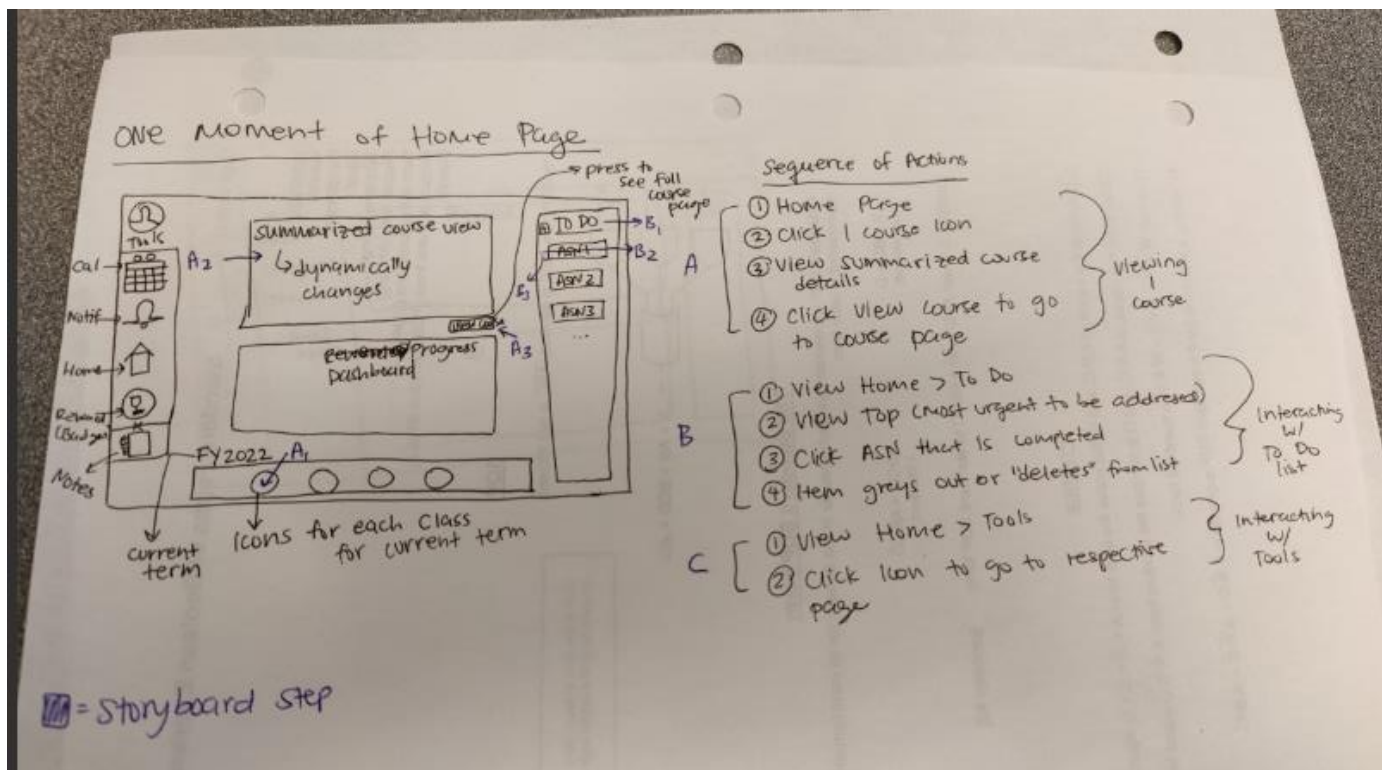 ONE Moment of Home Page
press to
see full
course
page
Tools
Cal
Notif
Home
Reward
(Badges)
Notes
A2
summarized course view
↳ dynamically
changes
View
A3
Progress
Dashboard
TO DO
B1
ASN1
B2
B3
ASN2
ASN3
...
FY2022
A1
current
term
Icons for each Class
for current term
Sequence of Actions
A
① Home Page
② Click 1 course Icon
③ View summarized course
details
④ Click View course to go
to course page
Viewing
1
course
B
① View Home > To Do
② View Top (most urgent to be addressed)
③ Click ASN that is completed
④ Item greys out or "deletes" from list
Interacting
w/
To Do
list
C
① View Home > Tools
② Click Icon to go to respective
page
Interacting
w/
Tools
= Storyboard step